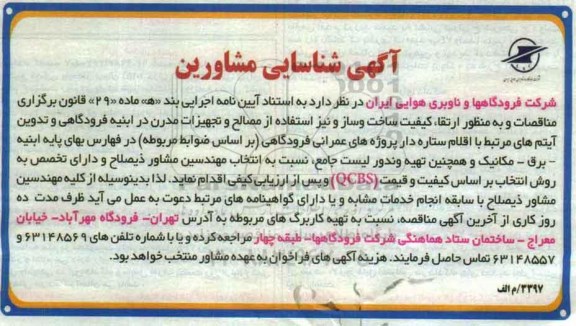 آگهی شناسایی مشاورین
شرکت فرودگاهها و ناوبری هوایی ایران در نظر دارد به استناد آیین نامه اجرایی بند «هـ» ماده «۲۹» قانون برگزاری
مناقصات و به منظور ارتقاء کیفیت ساخت وساز و نیز استفاده از مصالح و تجهیزات مدرن در ابنیه فرودگاهی و تدوین
آیتم های مرتبط با اقلام ستاره دار پروژه های عمرانی فرودگاهی (بر اساس ضوابط مربوطه) در فهارس بهای پایه ابنیه
- برق - مکانیک و همچنین تهیه وندور لیست جامع، نسبت به انتخاب مهندسین مشاور ذیصلاح و دارای تخصص به
روش انتخاب بر اساس کیفیت و قیمت (QCBS) و پس از ارزیابی کیفی اقدام نماید. لذا بدینوسیله از کلیه مهندسین
مشاور ذیصلاح با سابقه انجام خدمات مشابه و یا دارای گواهینامه های مرتبط دعوت به عمل می آید ظرف مدت ده
روز کاری از آخرین آگهی مناقصه، نسبت به تهیه کاربرگ های مربوطه به آدرس تهران- فرودگاه مهرآباد- خیابان
معراج - ساختمان ستاد هماهنگی شرکت فرودگاهها- طبقه چهار مراجعه کرده و یا با شماره تلفن های ۶۳۱۴۸۵۶۹ و
۶۳۱۴۸۵۵۷ تماس حاصل فرمایند. هزینه آگهی های فراخوان به عهده مشاور منتخب خواهد بود.
۳۳۹۷/م الف